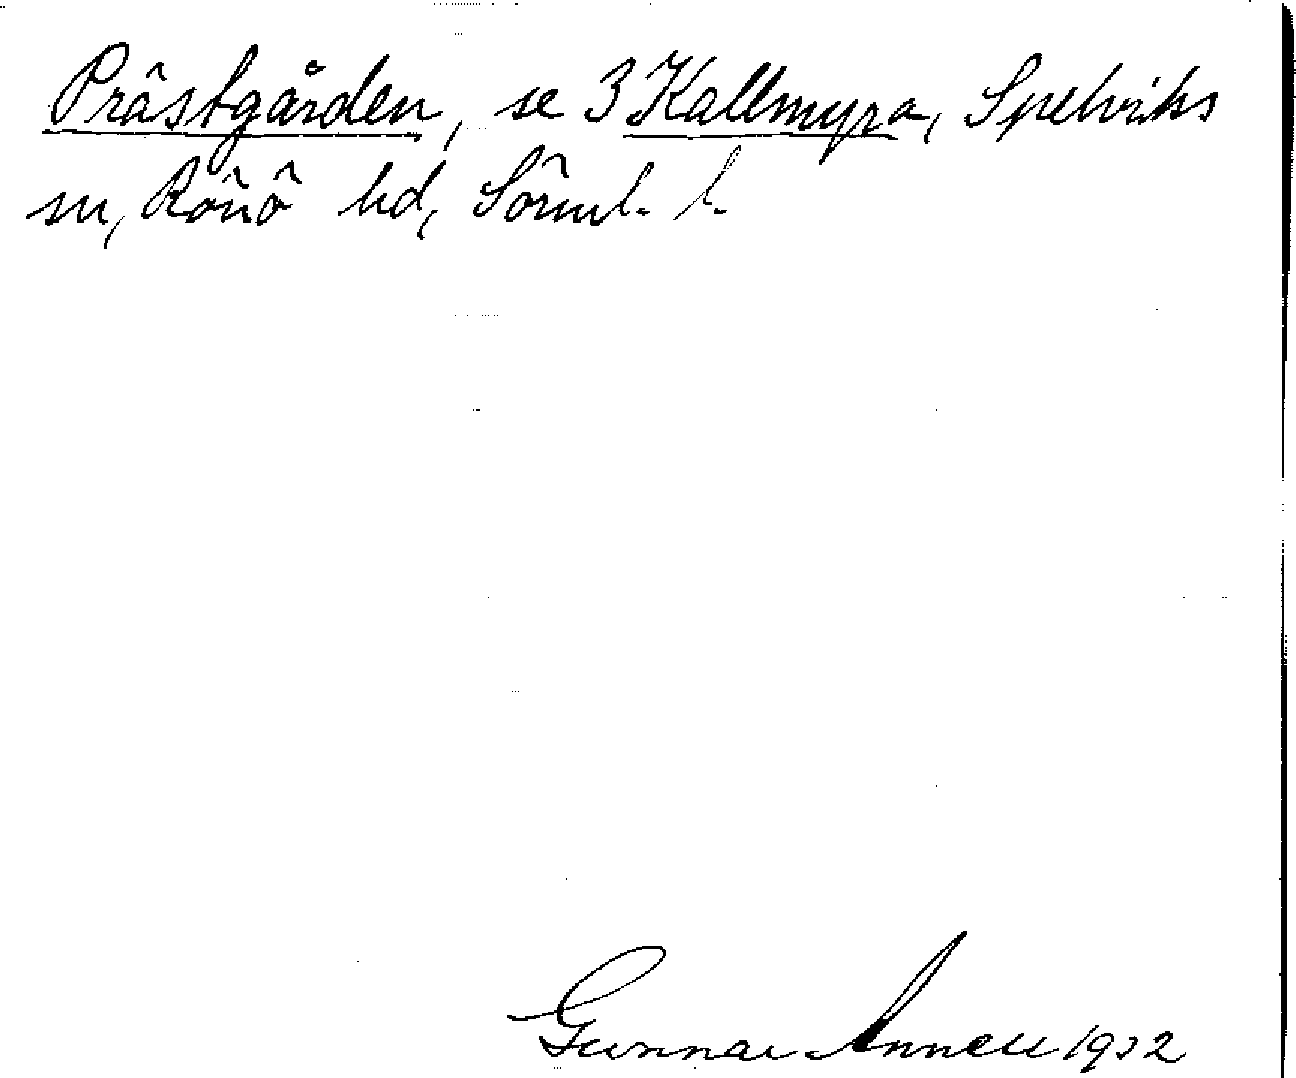 Prästgården, se 3 Kallmyra, Spelviks
sn, Rönö hd, Sörml. l.
Gunnar Annell 1932